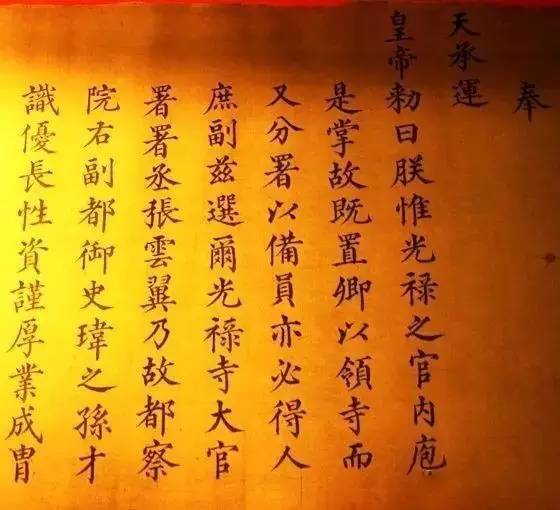 奉
天承運
皇帝勅曰朕惟光禄之官内庖
是掌故既置卿以領寺而
又分署以備員亦必得人
庶副兹選爾光禄寺大官
署署丞張雲翼乃故都察
院右副都御史瑋之孫才
識優長性資謹厚業成胄